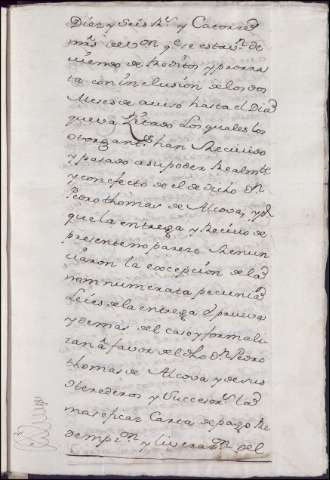 Diez y seis Rˢ y Catorce
más de von q.e se estavan de
viendo de Reditos y prorra
ta con inclusión de los dos
Meses de aviso hasta el dia
que va zitado los quales los
otorgant.s han Recivido
y pasado a su poder Realm.te
y con efecto de el de dicho Dn
Pedro thomas de Alcova, y p.r
que la entrega y Recivo de
presente no parece Renun
ciaron la excepcion de la
non numerata pecunia
Leies de la entrega prueva
y demas del caso y formali
zan a favor de dho Dn Pedro
thomas de Alcova y de sus
herederos y Succesor.s la
mas eficaz Carta de pago Re
dempn y livera.on del